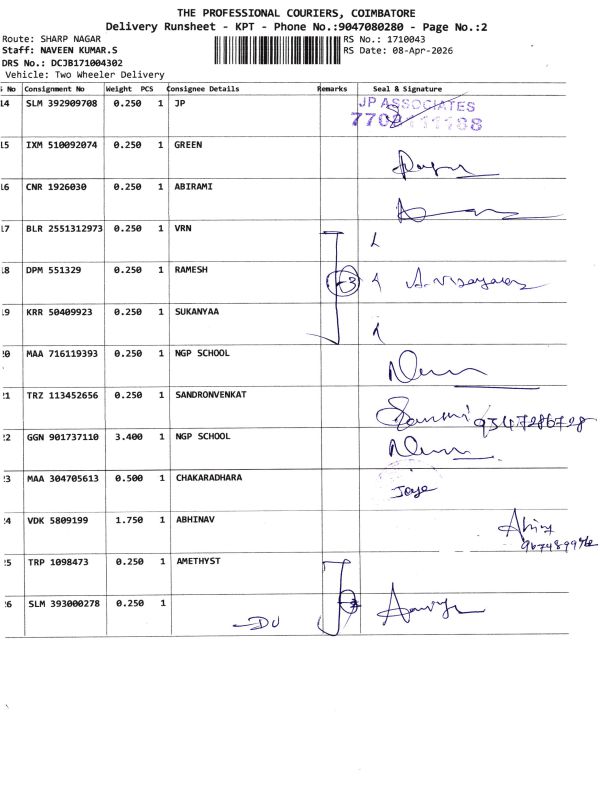 THE PROFESSIONAL COURIERS, COIMBATORE
Delivery Runsheet - KPT - Phone No.:9047080280 - Page No.:2
Route: SHARP NAGAR
RS No.: 1710043
Staff: NAVEEN KUMAR.S
RS Date: 08-Apr-2026
DRS No.: DCJB171004302
Vehicle: Two Wheeler Delivery
No Consignment No Weight PCS Consignee Details Remarks Seal & Signature
14 SLM 392909708 0.250 1 JP JP ASSOCIATES
15 IXM 510092074 0.250 1 GREEN
16 CNR 1926030 0.250 1 ABIRAMI
17 BLR 2551312973 0.250 1 VRN
18 DPM 551329 0.250 1 RAMESH 3
19 KRR 50409923 0.250 1 SUKANYAA
20 MAA 716119393 0.250 1 NGP SCHOOL
21 TRZ 113452656 0.250 1 SANDRONVENKAT
22 GGN 901737110 3.400 1 NGP SCHOOL
23 MAA 304705613 0.500 1 CHAKARADHARA
24 VDK 5809199 1.750 1 ABHINAV
25 TRP 1098473 0.250 1 AMETHYST
26 SLM 393000278 0.250 1